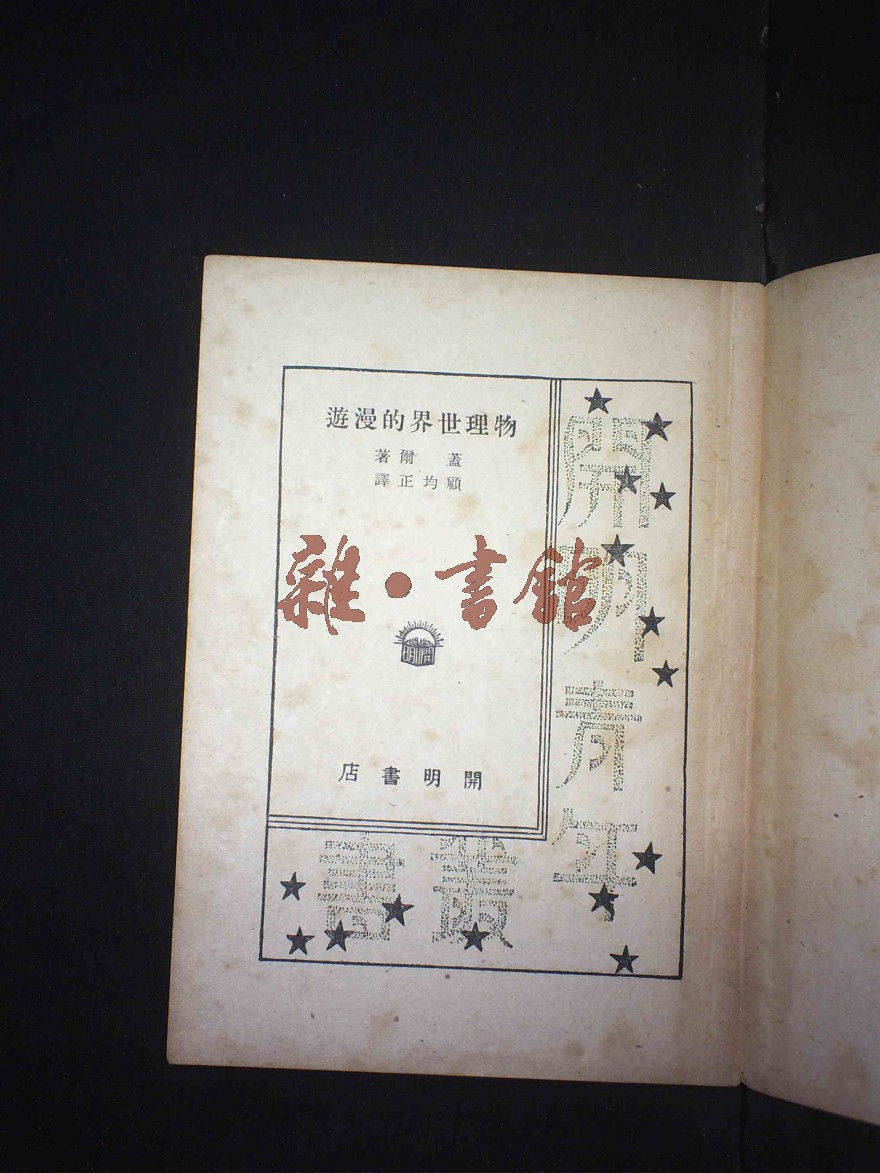 物理世界的漫遊
蓋爾著
顧均正譯
雜·書館
開明
開明書店
開明青年
叢書